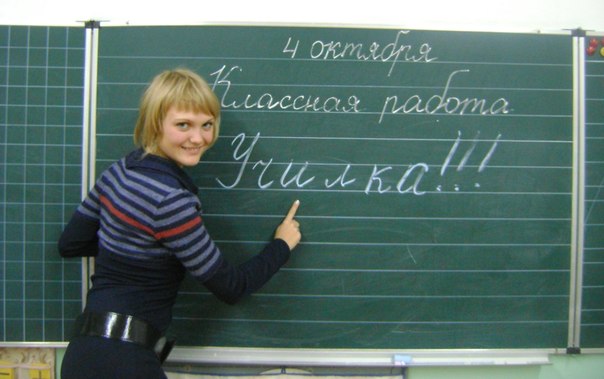 4 октября
Классная работа
Училка!!!